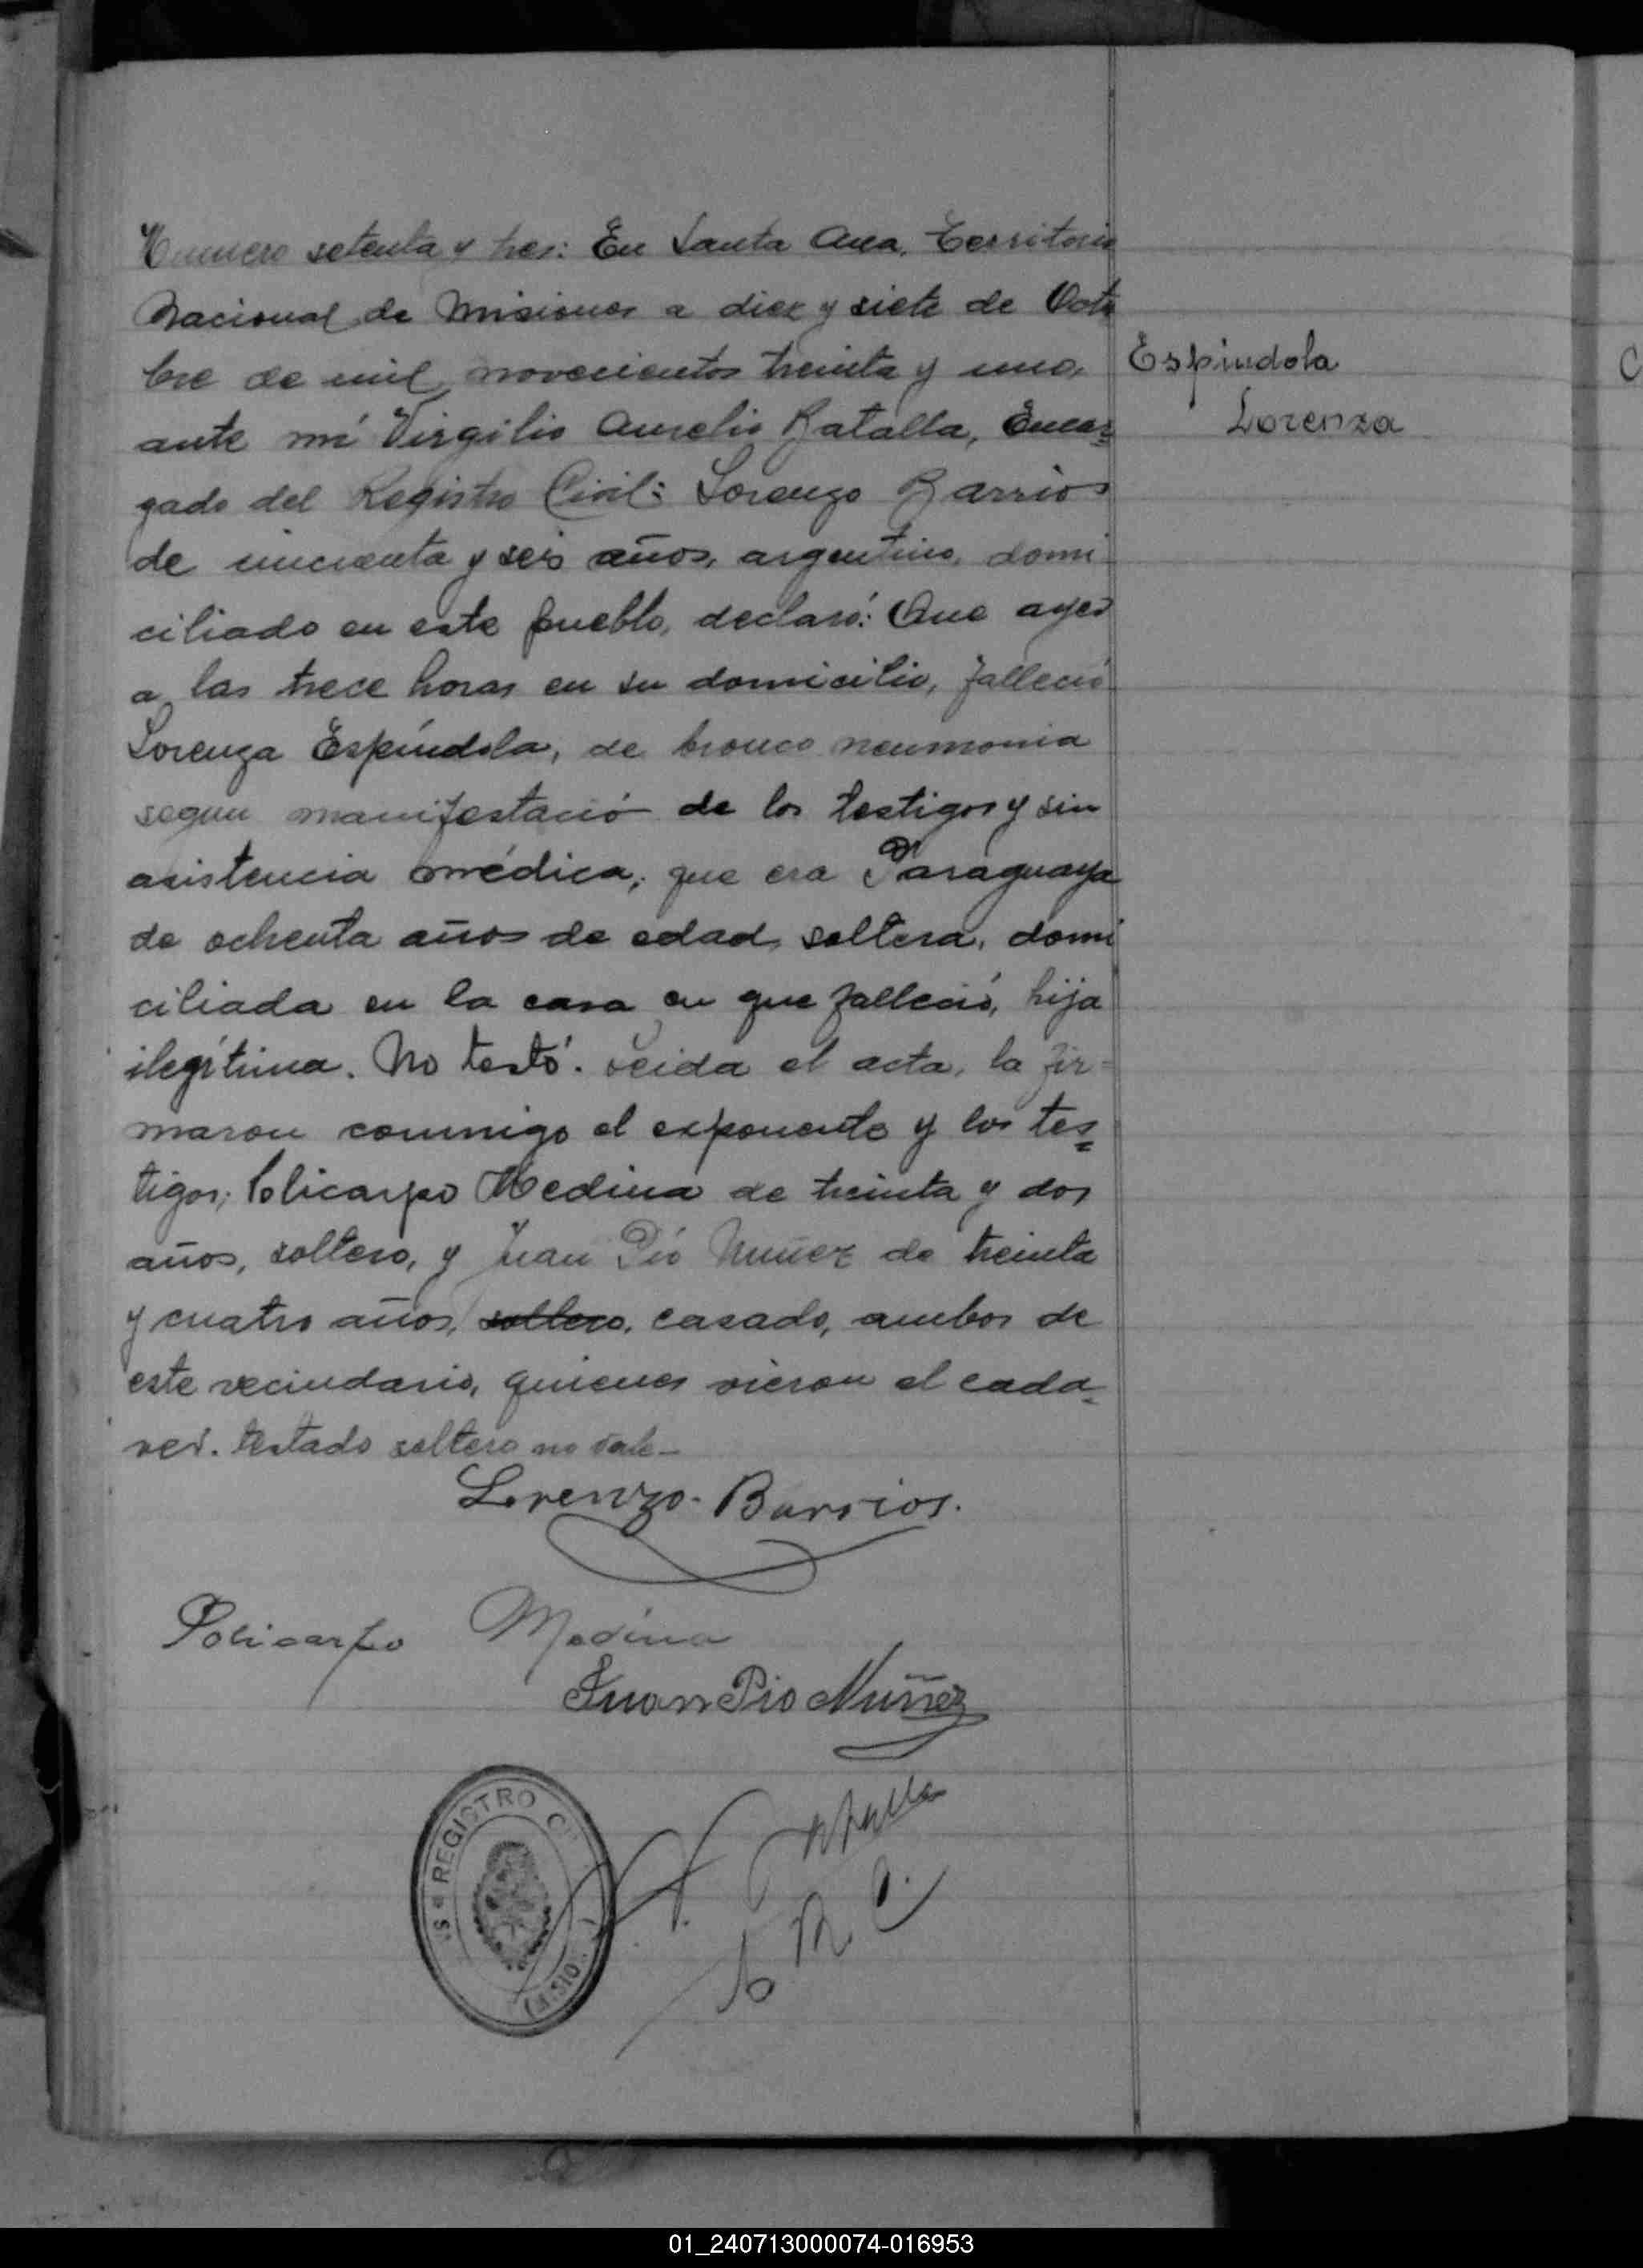 Numero setenta y tres: En Santa Ana, Territorio
Nacional de Misiones a diez y siete de Octu
bre de mil novecientos treinta y uno,
ante mí Virgilio Aurelio Batalla, Encar=
gado del Registro Civil: Lorenzo Barrios
de cincuenta y seis años, argentino, domi
ciliado en este pueblo, declaró: Que ayer
a las trece horas en su domicilio, falleció
Lorenza Espíndola, de bronco neumonia
segun manifestació de los testigos y sin
asistencia médica; que era Paraguaya
de ochenta años de edad, soltera, domi
ciliada en la casa en que falleció, hija
ilegítima. No testó. Leida el acta, la fir=
maron conmigo el exponente y los tes=
tigos; Policarpo Medina de treinta y dos
años, soltero, y Juan Pío Nuñez de treinta
y cuatro años, soltero, casado, ambos de
este vecindario, quienes vieron el cada=
ver. testado soltero no vale—
Espindola
Lorenza
Lorenzo Barrios.
Policarpo Medina
Juan Pio Nuñez
REGISTRO
Batalla